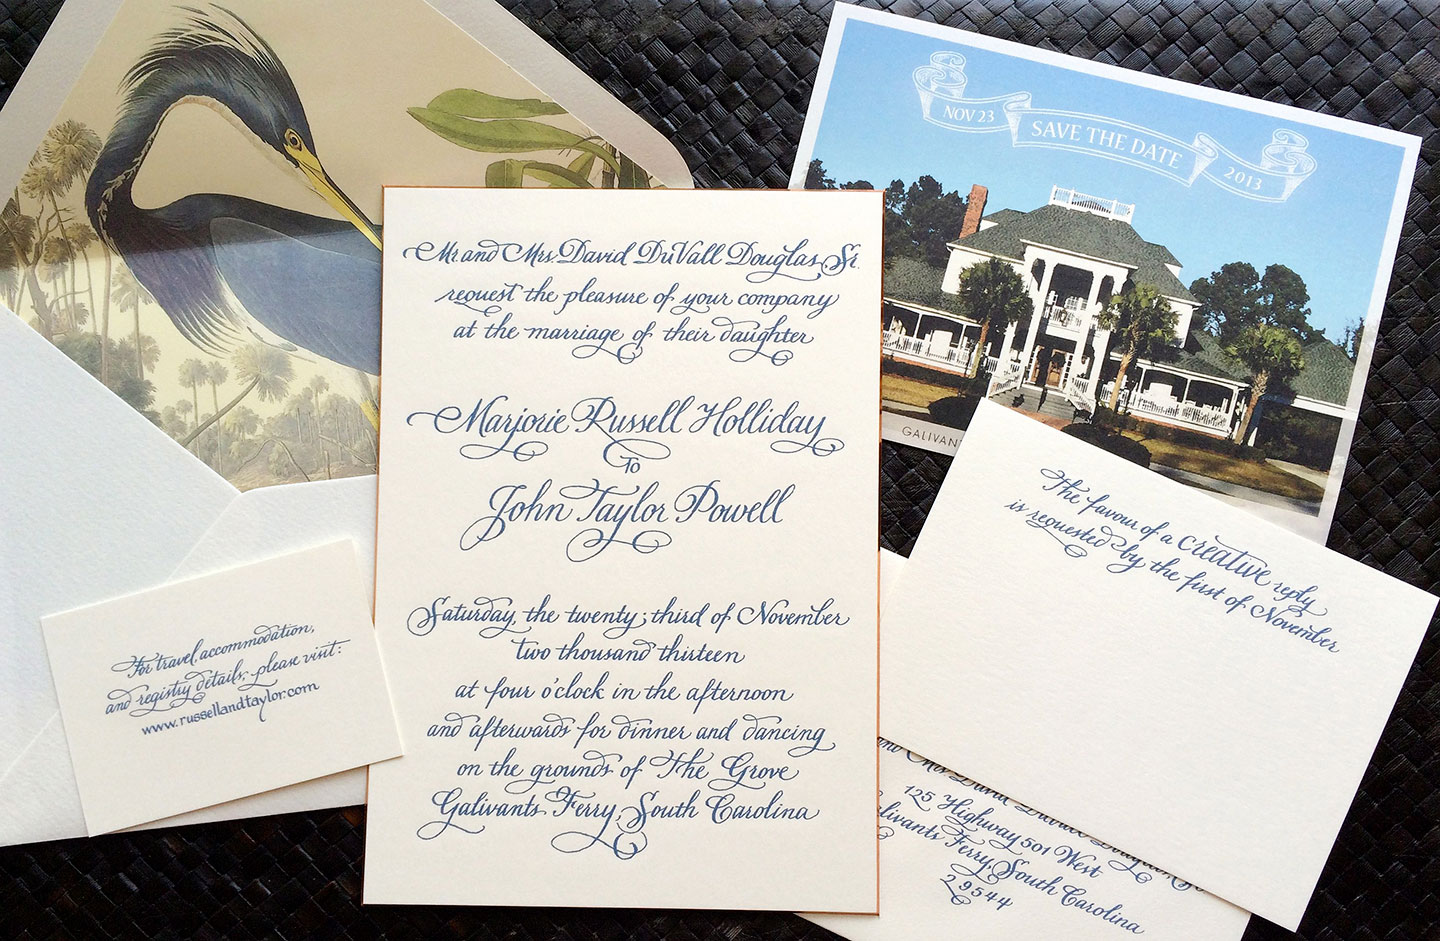 Mr. and Mrs. David DuVall Douglas, Sr.
request the pleasure of your company
at the marriage of their daughter
Marjorie Russell Holliday
To
John Taylor Powell
Saturday, the twenty-third of November
two thousand thirteen
at four o'clock in the afternoon
and afterwards for dinner and dancing
on the grounds of The Grove
Galivants Ferry, South Carolina
For travel, accommodation,
and registry details, please visit:
www.russellandtaylor.com
NOV 23
SAVE THE DATE
2013
GALIVAN
The favour of a creative reply
is requested by the first of November
and Mrs. David DuVall Douglas, Sr.
125 Highway 501 West
alivants Ferry, South Carolina
29544